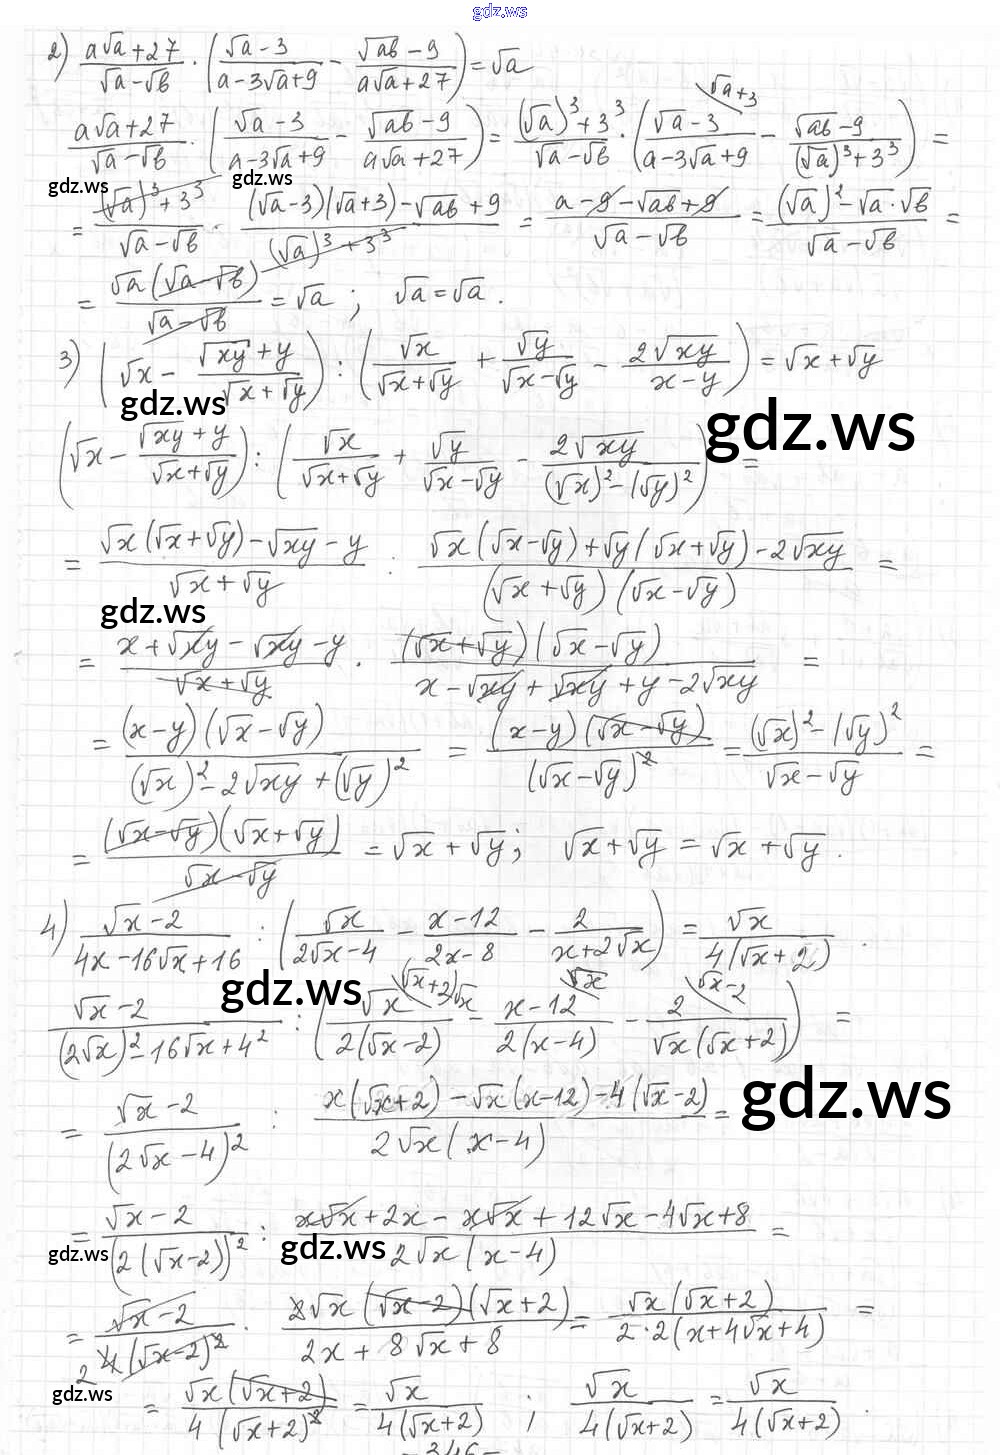 gdz.ws
2) (a√a+27)/(√a−√b) · ((√a−3)/(a−3√a+9) − (√ab−9)/(a√a+27)) = √a
(a√a+27)/(√a−√b) · ((√a−3)/(a−3√a+9) − (√ab−9)/(a√a+27)) = ((√a)³+3³)/(√a−√b) · ((√a−3)/(a−3√a+9) √a+3 − (√ab−9)/((√a)³+3³)) =
gdz.ws gdz.ws
= ((√a)³+3³)/(√a−√b) · ((√a−3)(√a+3)−√ab+9)/((√a)³+3³) = (a−9−√ab+9)/(√a−√b) = ((√a)²−√a·√b)/(√a−√b) =
= (√a(√a−√b))/(√a−√b) = √a ; √a=√a .
3) (√x − (√xy+y)/(√x+√y)) : (√x/(√x+√y) + √y/(√x−√y) − 2√xy/(x−y)) = √x+√y
gdz.ws gdz.ws
(√x − (√xy+y)/(√x+√y)) : (√x/(√x+√y) + √y/(√x−√y) − 2√xy/((√x)²−(√y)²)) =
= (√x(√x+√y)−√xy−y)/(√x+√y) : (√x(√x−√y)+√y(√x+√y)−2√xy)/((√x+√y)(√x−√y)) =
gdz.ws
= (x+√xy−√xy−y)/(√x+√y) · ((√x+√y)(√x−√y))/(x−√xy+√xy+y−2√xy) =
= ((x−y)(√x−√y))/((√x)²−2√xy+(√y)²) = ((x−y)(√x−√y))/((√x−√y)²) = ((√x)²−(√y)²)/(√x−√y) =
= ((√x−√y)(√x+√y))/(√x−√y) = √x+√y; √x+√y = √x+√y .
4) (√x−2)/(4x−16√x+16) : (√x/(2√x−4) − (x−12)/(2x−8) − 2/(x+2√x)) = √x/(4(√x+2)) .
gdz.ws
(√x−2)/((2√x)²−16√x+4²) : (√x/(2(√x−2)) (√x+2)√x − (x−12)/(2(x−4)) √x − 2/(√x(√x+2)) √x−2) =
gdz.ws
= (√x−2)/((2√x−4)²) : (x(√x+2)−√x(x−12)−4(√x−2))/(2√x(x−4)) =
= (√x−2)/((2(√x−2))²) : (x√x+2x−x√x+12√x−4√x+8)/(2√x(x−4)) =
gdz.ws gdz.ws
= (√x−2)/(4(√x−2)²) · (2√x(√x−2)(√x+2))/(2x+8√x+8) = (√x(√x+2))/(2·2(x+4√x+4)) =
2
gdz.ws
= (√x(√x+2))/(4(√x+2)²) = √x/(4(√x+2)) ; √x/(4(√x+2)) = √x/(4(√x+2)) .
−346−